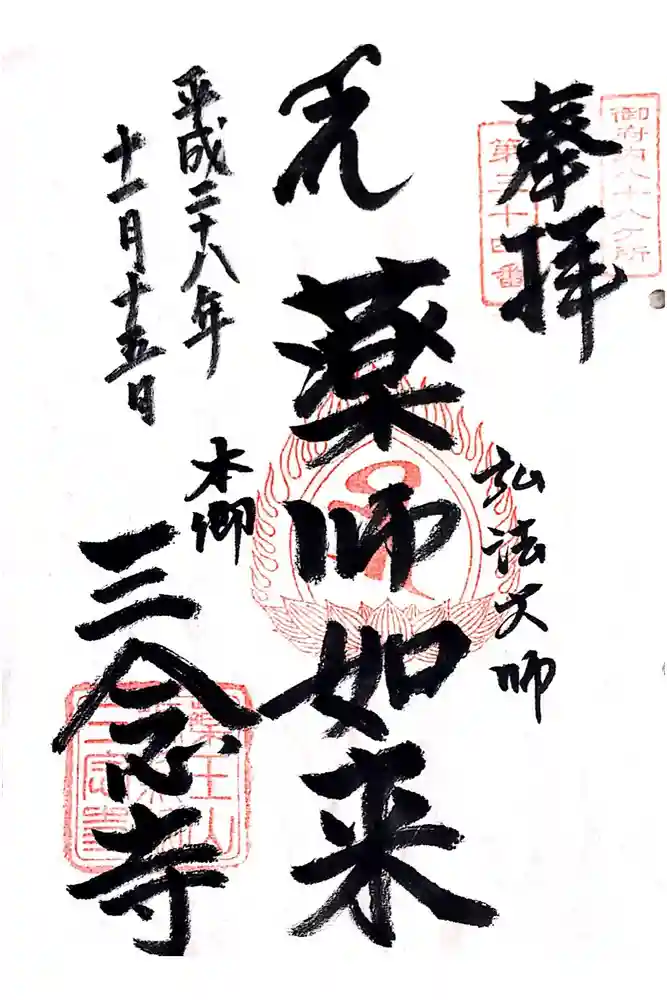 御府内八十八ヶ所
第三十四番
奉拝
弘法大師
薬師如来
本郷
三念寺
平成二十八年
十一月十五日